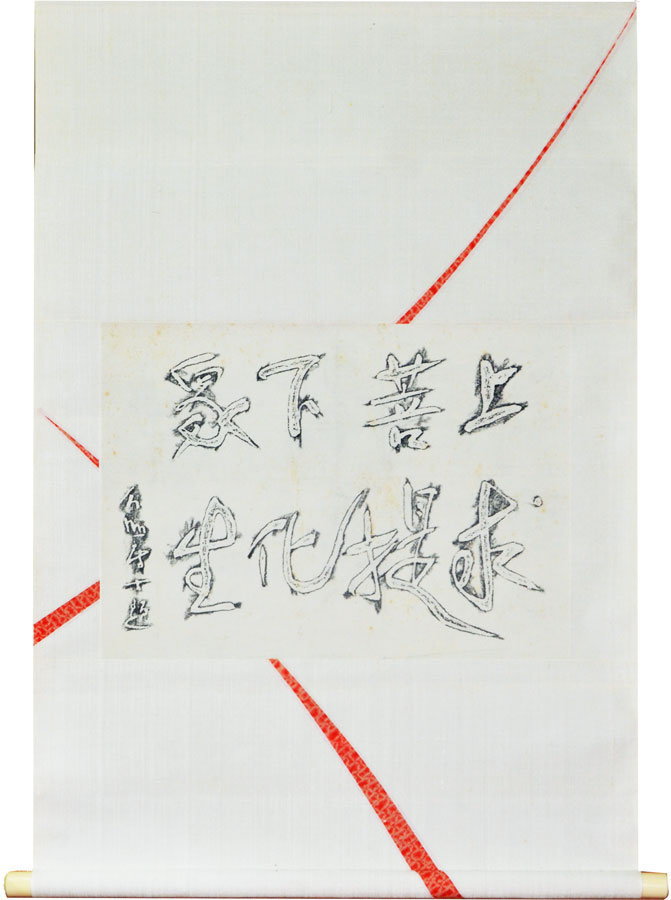 上求
菩提
下化
衆生